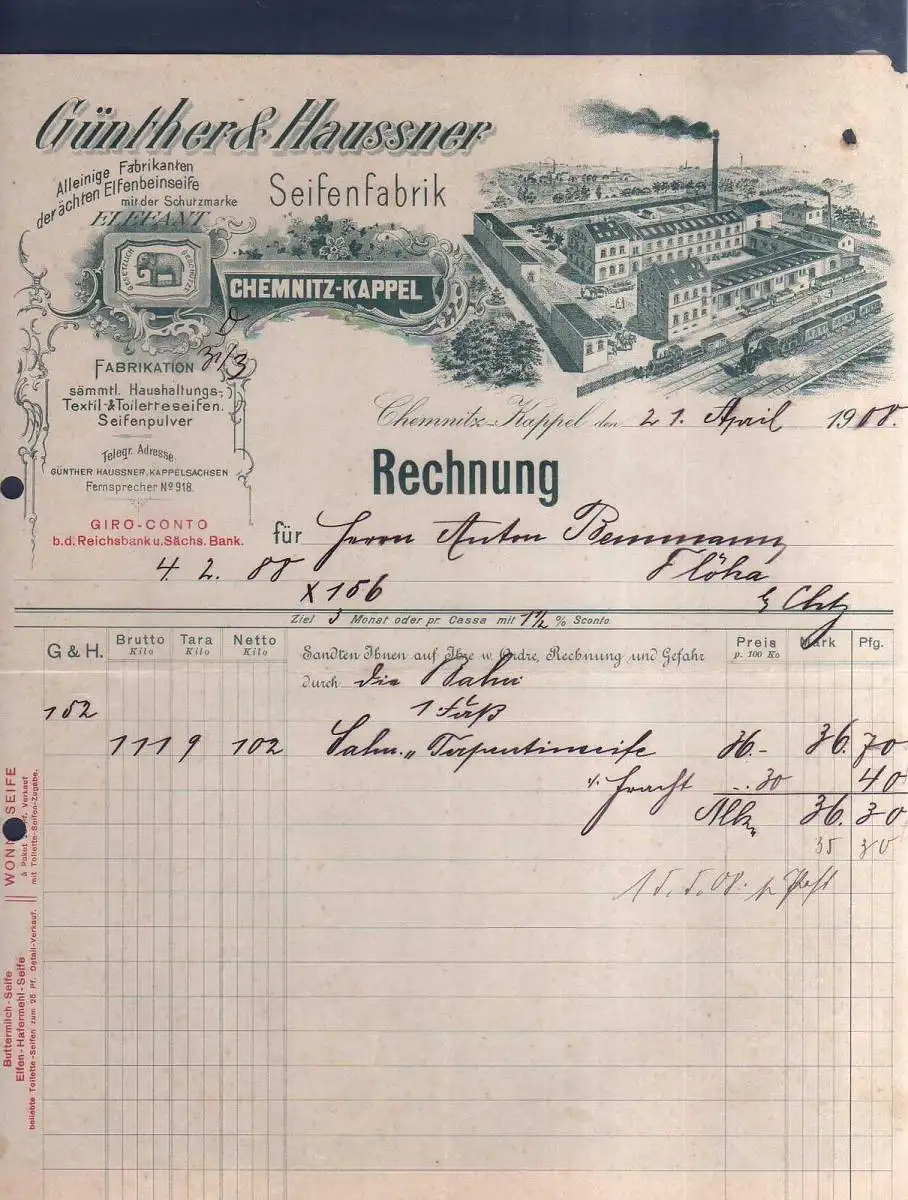 Günther & Haussner
Alleinige Fabrikanten
der ächten Elfenbeinseife
mit der Schutzmarke
ELEFANT
Seifenfabrik
GESETZLICH GESCHÜTZT
CHEMNITZ-KAPPEL
31/3
FABRIKATION
sämmtl. Haushaltungs-,
Textil-& Toiletteseifen.
Seifenpulver
Telegr. Adresse
GÜNTHER HAUSSNER, KAPPELSACHSEN
Fernsprecher No 918.
Chemnitz-Kappel den 21. April 1908.
Rechnung
GIRO-CONTO
b.d. Reichsbank u. Sächs. Bank.
für Herrn Anton Bemmann,
Flöha
4. 2. 88
x 156
b/ Chtz
Ziel 3 Monat oder pr. Cassa mit 1 1/2 % Sconto
G & H. Brutto Kilo Tara Kilo Netto Kilo Preis p. 100 Ko Mark Pfg.
Sandten Ihnen auf Ihre w. Ordre, Rechnung und Gefahr
durch die Bahn
152 1 Faß
111 9 102 Salm. Terpentinseife 36.- 36. 70
Fracht -.30 40
Mk. 36. 30
35 30
15.5.08. p Post
WONNE SEIFE
mit Toilette-Seifen-Zugabe.
Buttermilch-Seife
Elfen-Hafermehl-Seife
beliebte Toilette-Seifen zum 25 Pf. Detail-Verkauf.